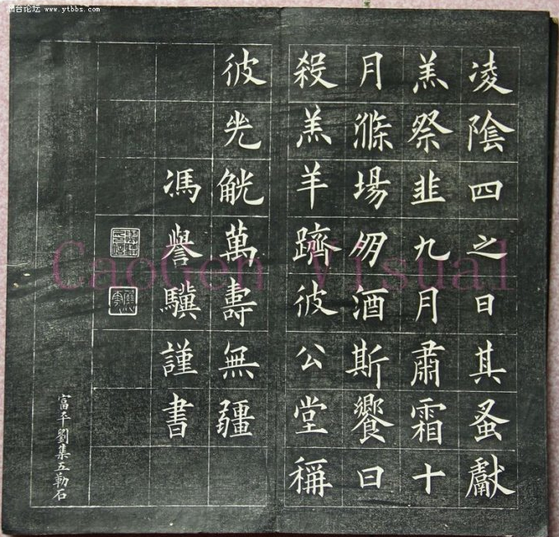 台论坛
www.ytbbs.com
凌陰四之日其蚤獻
羔祭韭九月肅霜十
月滌場朋酒斯饗曰
殺羔羊躋彼公堂稱
彼兕觥萬壽無疆
馮譽驥謹書
富平劉集五勒石
CaoGen Visual